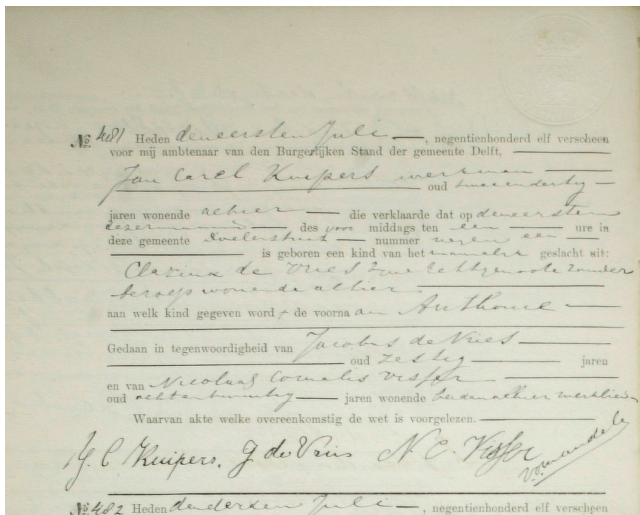 No 481 Heden den eersten Juli, negentienhonderd elf verscheen
voor mij ambtenaar van den Burgerlijken Stand der gemeente Delft,
Jan Carel Kuipers werkman
oud tweeendertig
jaren wonende alhier die verklaarde dat op den eersten
dezer maand des voor middags ten een ure in
deze gemeente Doelenstraat nummer negen een
is geboren een kind van het mannelijk geslacht uit:
Clazina de Vries zijne echtgenoote zonder
beroep wonende alhier
aan welk kind gegeven word t de voorna am Anthonie
Gedaan in tegenwoordigheid van Jacobus de Vries
oud zestig jaren
en van Nicolaas Cornelis Visser
oud achtentwintig jaren wonende beiden alhier werklieden
Waarvan akte welke overeenkomstig de wet is voorgelezen.
J. C Kuipers. J de Vries N. C. Visser
No 482 Heden den derden Juli, negentienhonderd elf verscheen